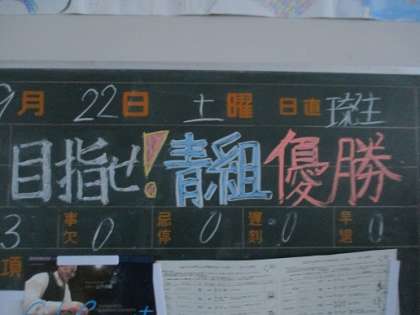 9月 22日 土曜 日直
目指せ!青組優勝
3 事欠 0 忌停 0 遅刻 0 早退 0
項